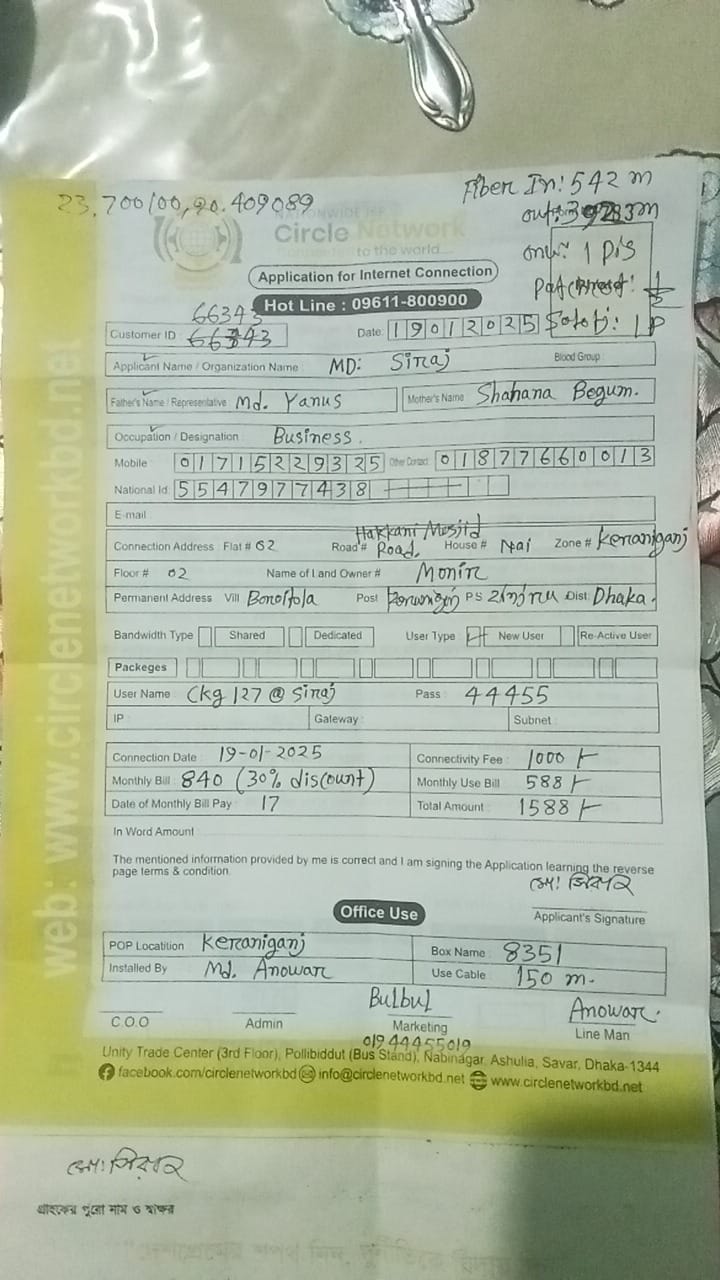 23.700100,90.409089
Fiber In: 542 m
out:
onu: 1 Pis
NATIONWIDE ISP
Circle Network
to the world
Application for Internet Connection
Hot Line : 09611-800900
66343
Customer ID : 66343
Date: 19012025
1 P
Applicant Name / Organization Name MD: Siraj
Blood Group :
Father's Name / Representative Md. Yanus
Mother's Name Shahana Begum.
Occupation / Designation : Business.
Mobile : 01715229325 Other Contact: 01877660013
National Id: 5547977438
E-mail :
Connection Address : Flat # 02 Road# Hakkani Mosjid Road. House # Nai Zone # Keraniganj
Floor # 02 Name of Land Owner # Monir
Permanent Address : Vill Post P.S Dist: Dhaka.
Bandwidth Type Shared Dedicated User Type New User Re-Active User
Packeges
User Name : Ckg127@Siraj Pass : 44455
IP : Gateway : Subnet :
Connection Date : 19-01-2025 Connectivity Fee : 1000/-
Monthly Bill : 840 (30% discount) Monthly Use Bill : 588/-
Date of Monthly Bill Pay : 17 Total Amount : 1588/-
In Word Amount :
The mentioned information provided by me is correct and I am signing the Application learning the reverse
page terms & condition.
Applicant's Signature
Office Use
POP Locatition : Keraniganj Box Name : 8351
Installed By : Md. Anowar Use Cable : 150 m.
Bulbul Anowar.
C.O.O Admin Marketing Line Man
01944455019
Unity Trade Center (3rd Floor), Pollibiddut (Bus Stand), Nabinagar, Ashulia, Savar, Dhaka-1344
facebook.com/circlenetworkbd info@circlenetworkbd.net www.circlenetworkbd.net
web: www.circlenetworkbd.net
গ্রাহকের পুরো নাম ও স্বাক্ষর